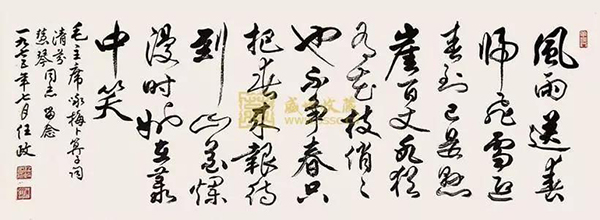 風雨送春
歸飛雪迎
春到已是懸
崖百丈冰猶
有花枝俏〻
也不争春只
把春来報待
到山花爛
漫时她在叢
中笑
毛主席咏梅卜算子词
清芬
慧琴同志留念
一九七三年七月任政
盛世收藏